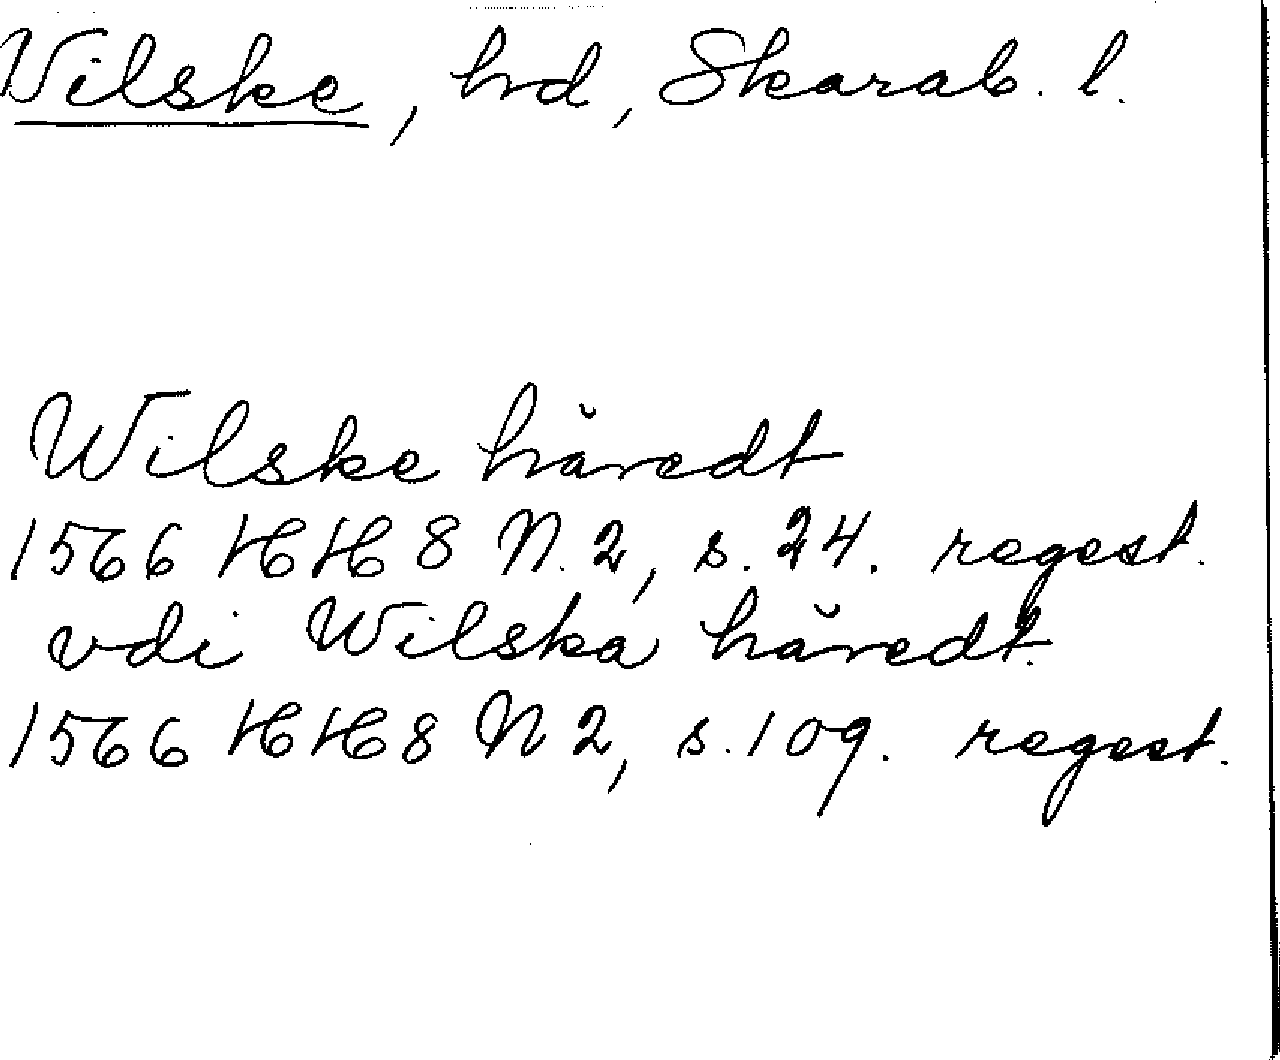 Vilske, hd, Skarab. l.
Wilske håredt
1566 HH 8 N. 2, s. 24. regest.
vdi Wilska håredt.
1566 HH 8 N 2, s. 109. regest.